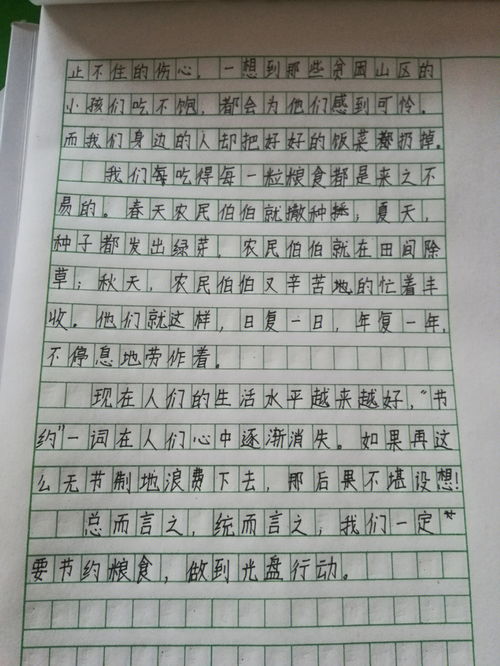 止不住的伤心，一想到那些贫困山区的
小孩们吃不饱，都会为他们感到可怜。
而我们身边的人却把好好的饭菜都扔掉。
我们每吃得每一粒粮食都是来之不
易的。春天农民伯伯就撒种播；夏天，
种子都发出绿芽，农民伯伯就在田间除
草；秋天，农民伯伯又辛苦地的忙着丰
收。他们就这样，日复一日，年复一年，
不停息地劳作着。
现在人们的生活水平越来越好，“节
约”一词在人们心中逐渐消失。如果再这
么无节制地浪费下去，那后果不堪设想！
总而言之，统而言之，我们一定
要节约粮食，做到光盘行动。